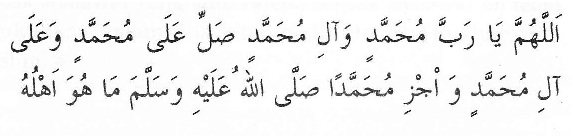 اَللَّهُمَّ يَا رَبَّ مُحَمَّدٍ وَآلِ مُحَمَّدٍ صَلِّ عَلَى مُحَمَّدٍ وَعَلَى
آلِ مُحَمَّدٍ وَ اْجْزِ مُحَمَّدًا صَلَّى اللهُ عَلَيْهِ وَسَلَّمَ مَا هُوَ اَهْلُهُ